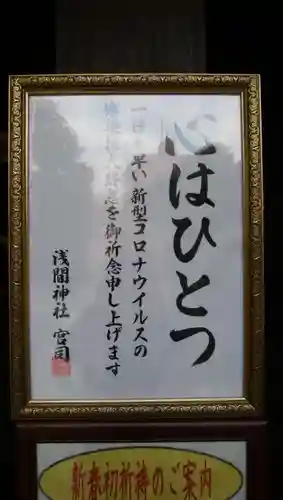 心はひとつ
一日も早い新型コロナウイルスの
を御祈念申し上げます
浅間神社 宮司
新春初祈祷のご案内